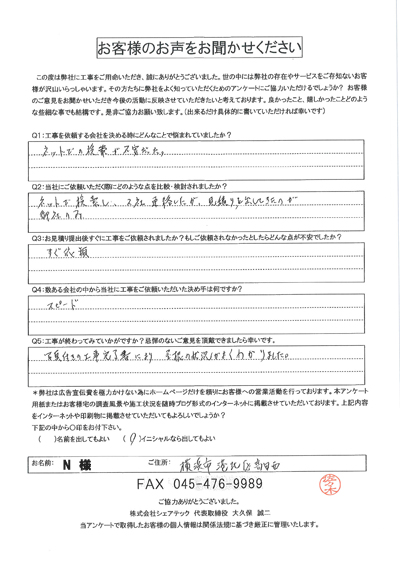 お客様のお声をお聞かせください
この度は弊社に工事をご用命いただき、誠にありがとうございました。世の中には弊社の存在やサービスをご存知ないお客
様が沢山いらっしゃいます。その方たちに弊社をよく知っていただくためのアンケートにご協力いただけるでしょうか？ お客様
のご意見をお聞かせいただき今後の活動に反映させていただきたいと考えております。良かったこと、嬉しかったことどのよう
な些細な事でも結構です。是非ご協力お願い致します。（出来るだけ具体的に書いていただければ幸いです）
Q1：工事を依頼する会社を決める時にどんなことで悩まれていましたか？
ネットでの検索が不安だった。
Q2：当社にご依頼いただく際にどのような点を比較・検討されましたか？
ネットで検索し、2社連絡したが、見積りを出してきたのが
御社のみ
Q3：お見積り提出後すぐに工事をご依頼されましたか？もしご依頼されなかったとしたらどんな点が不安でしたか？
すぐ依頼
Q4：数ある会社の中から当社に工事をご依頼いただいた決め手は何ですか？
スピード
Q5：工事が終わってみていかがですか？忌憚のないご意見を頂戴できましたら幸いです。
写真付きの工事完了書により 屋根の状況がよくわかりました。
＊弊社は広告宣伝費を極力かけない為にホームページだけを頼りにお客様への営業活動を行っております。本アンケート
用紙またはお客様宅の調査風景や施工状況を随時ブログ形式のインターネットに掲載させていただいております。上記内容
をインターネットや印刷物に掲載させていただいてもよろしいでしょうか？
下記の中から○印をお付け下さい。
（ ）名前を出してもよい （○）イニシャルなら出してもよい
お名前： N 様 ご住所： 横浜市港北区高田西
FAX 045-476-9989
佐々木
ご協力ありがとうございました。
株式会社シェアテック 代表取締役 大久保 誠二
当アンケートで取得したお客様の個人情報は関係法規に基づき厳正に管理いたします。